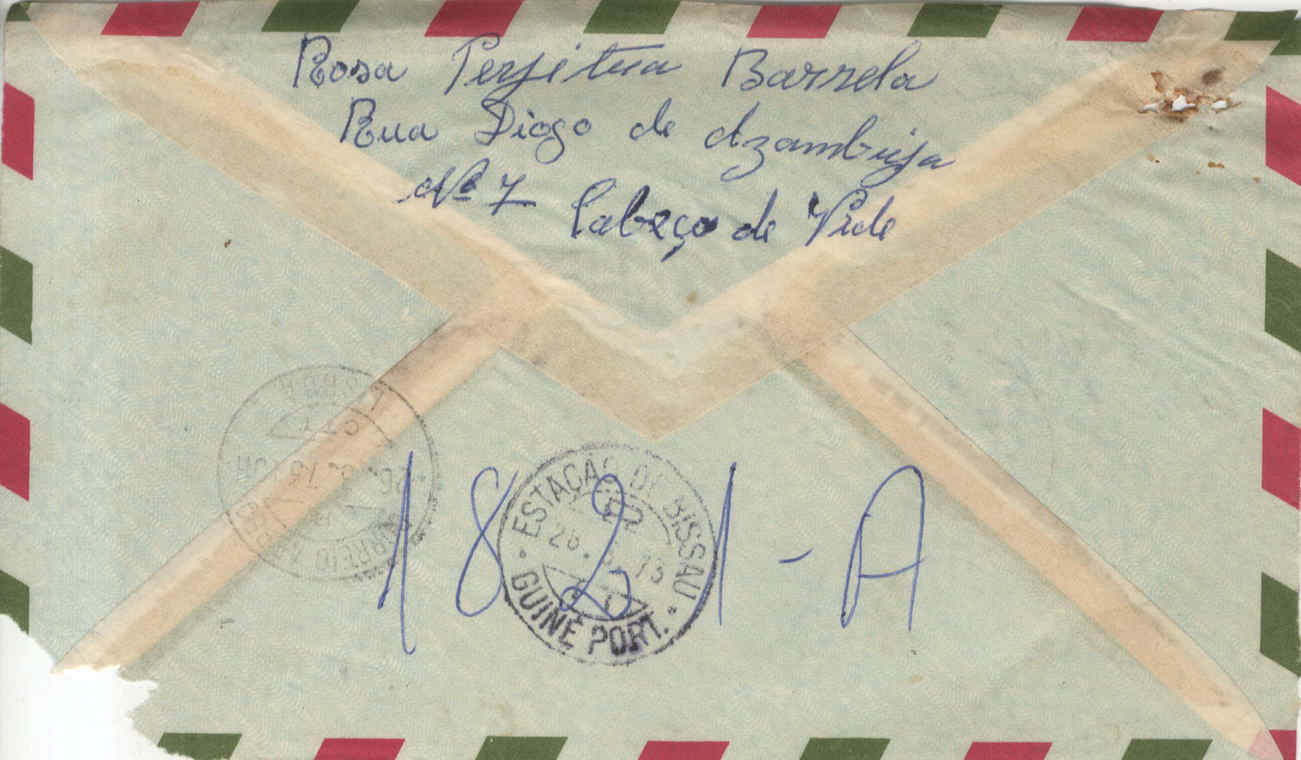 Rosa Perpitua Barrela
Rua Diogo de Azambuja
Nº 7 Cabeço de Vide
1821-A
ESTAÇÃO DE BISSAU
GUINÉ PORT.
LISBOA
CORREIO